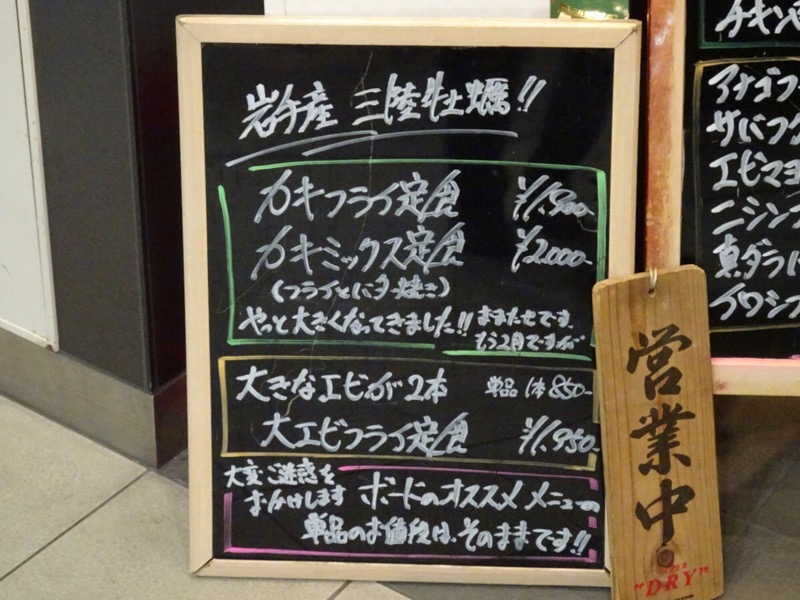 岩手産 三陸牡蠣!!
カキフライ定食 ¥1,900-
カキミックス定食 ¥2,000-
(フライとバタ焼き)
やっと大きくなってきました!! おまたせです。
もう2月ですが
大きなエビが2本 単品 1本 850-
大エビフライ定食 ¥1,950-
大変ご迷惑を
おかけします ボードのオススメメニューの
単品のお値段は、そのままです!!
営業中
"DRY"
チキン
アナゴフ
サバフ
エビマヨ
ニシン
真ダラ
イワシフ